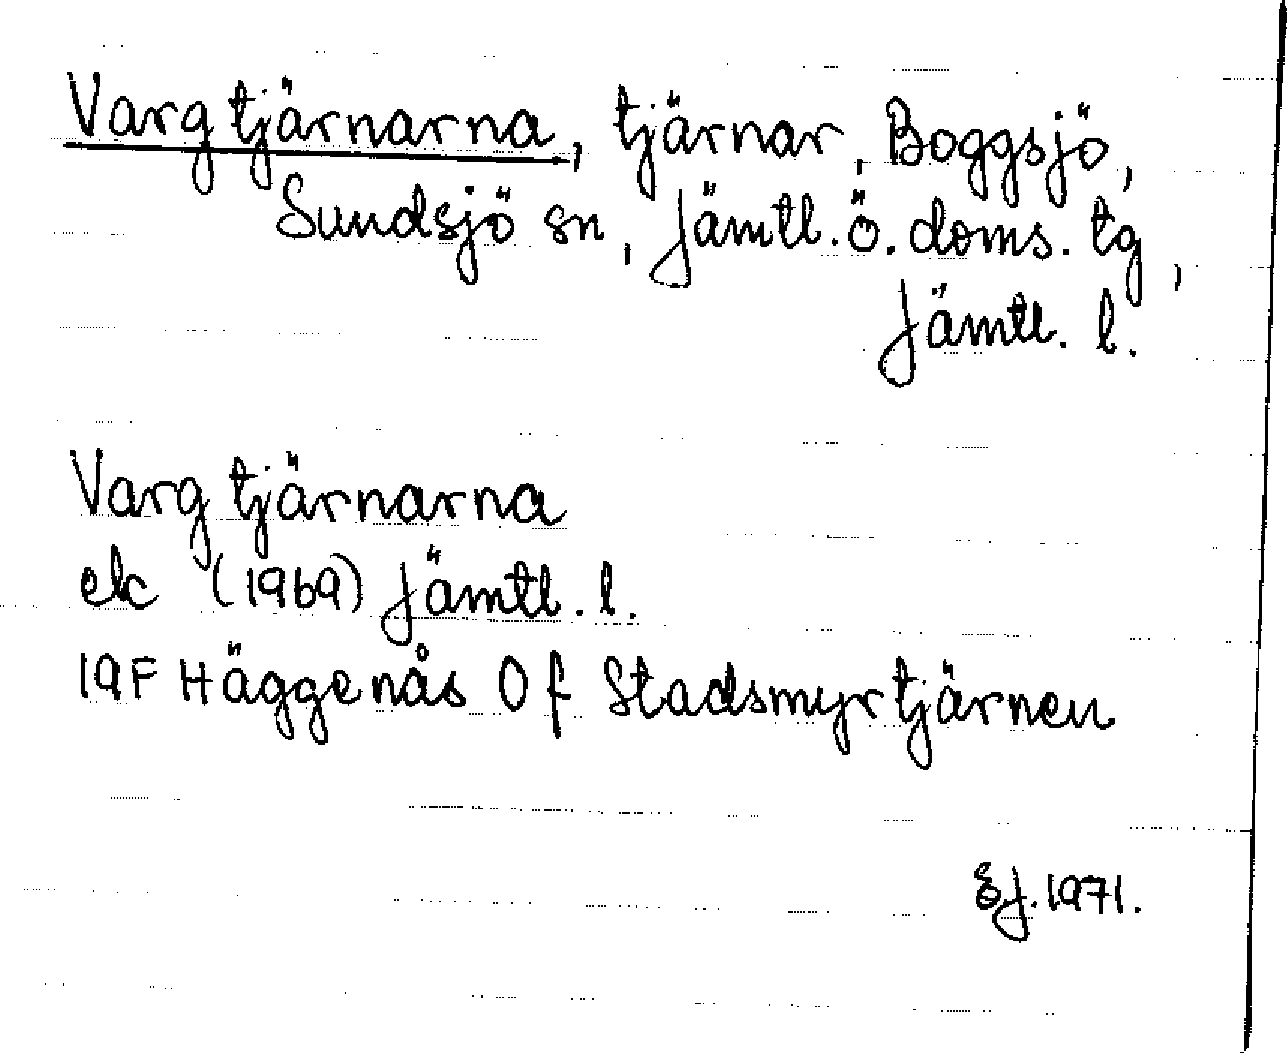 Vargtjärnarna, tjärnar, Boggsjö,
Sundsjö sn, Jämtl. ö. doms. tg,
Jämtl. l.
Vargtjärnarna
ek (1969) Jämtl. l.
19F Häggenås 0 f Stadsmyrtjärnen
1971.